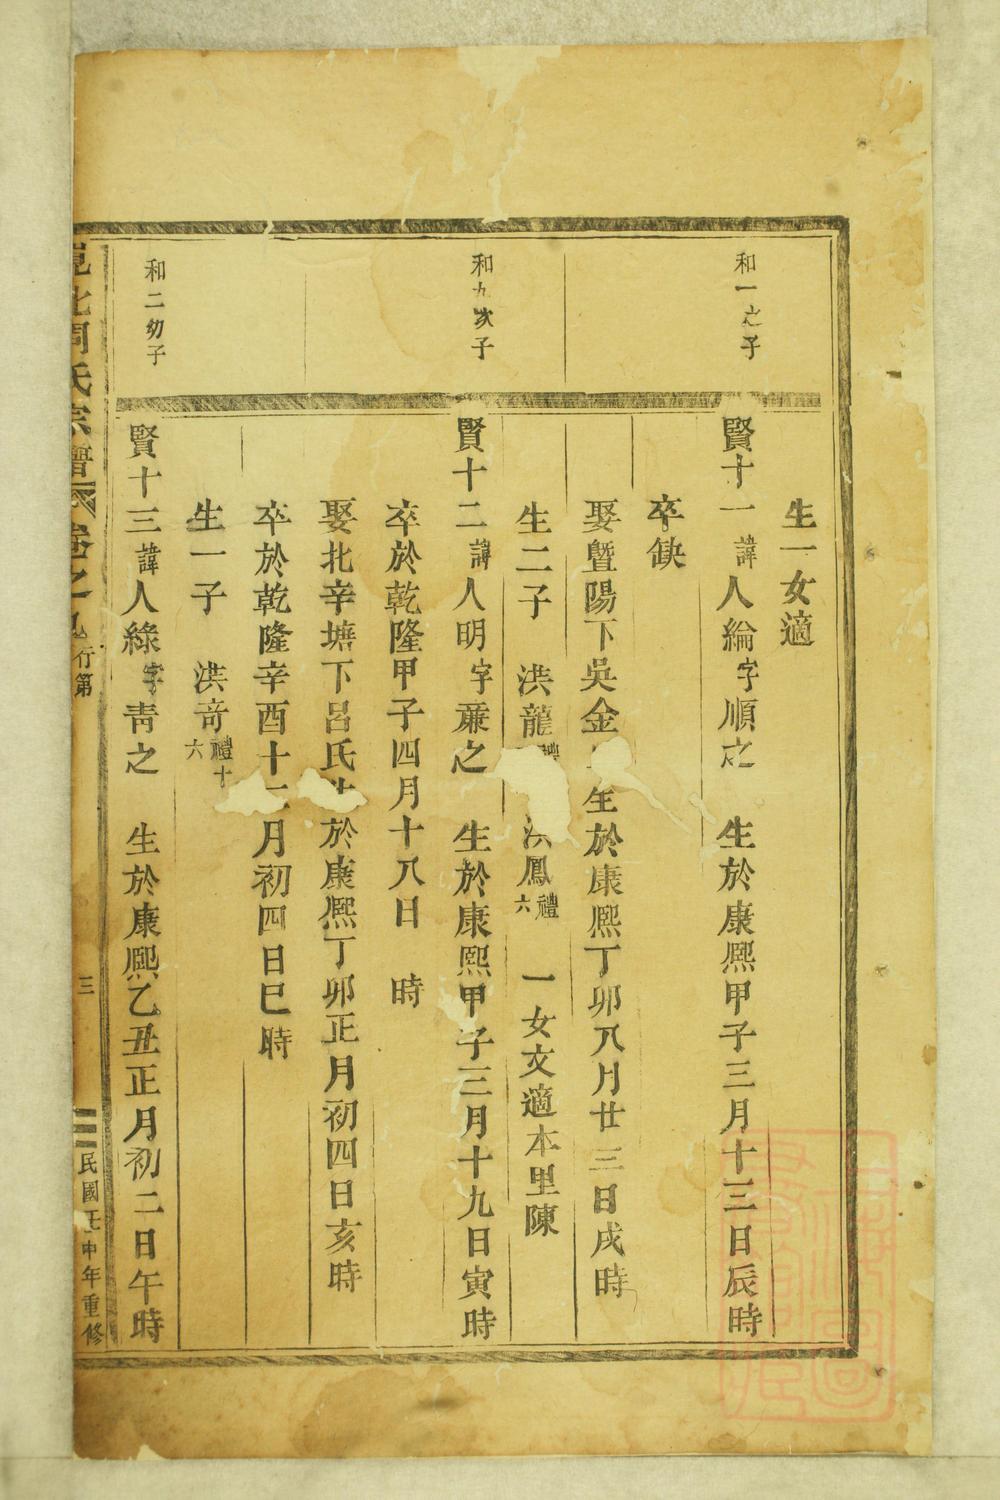 生一女適
和一之子
賢十一諱人綸字順之 生於康熙甲子三月十三日辰時
卒缺
娶暨陽下吳金 生於康熙丁卯八月廿三日戌時
生二子 洪龍禮 洪鳳禮六 一女文適本里陳
和九次子
賢十二諱人明字蕭之 生於康熙甲子三月十九日寅時
卒於乾隆甲子四月十八日 時
娶北辛塘下呂氏生於康熙丁卯正月初四日亥時
卒於乾隆辛酉十二月初四日巳時
生一子 洪奇禮十六
和二幼子
賢十三諱人綠字青之 生於康熙乙丑正月初二日午時
北周氏宗譜 卷之 行第
三
民國壬申年重修